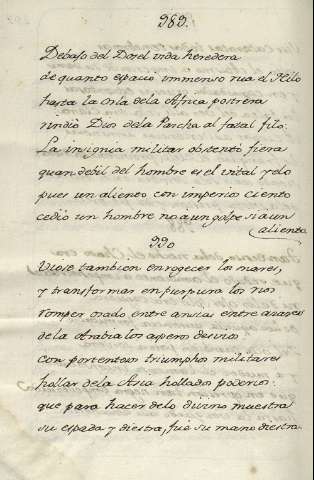 989.
Debajo del Dosel vida heredera
de quanto espacio immenso rua el Nilo
hasta la Orla dela Africa postrera
rindio Dios dela Parcha al fatal filo:
La insignia militar obstentó fiera
quan debil del hombre es el vital yelo
pues un aliento con imperio ciento
cedio un hombre no a un golpe si a un
aliento
990
Viose tambien enrogecer los mares,
y transformar en purpura los rios
romper osado entre ansias entre avares
dela Arabia los asperos desvios
con portentosos triumphos militares
hollar dela Asia hollados poderios:
que para hacer delo divino muestra
su espada y diestra, fue su mano diestra